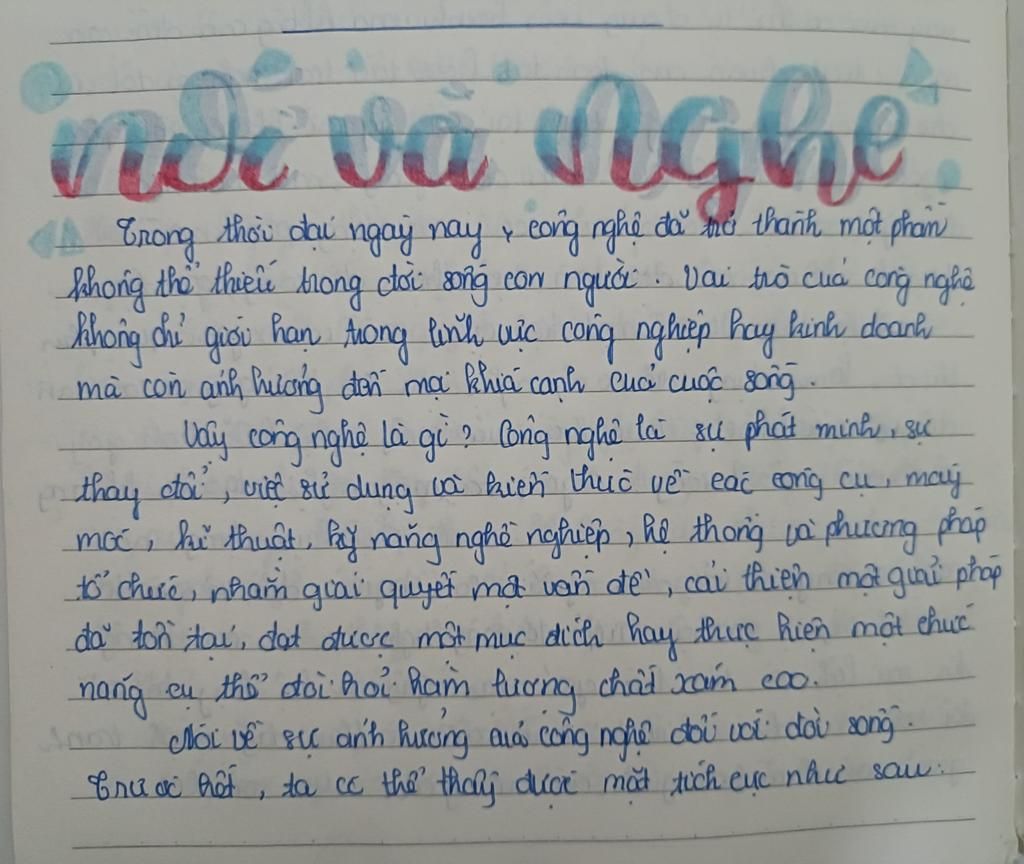 nói và Nghe
Trong thời đại ngày nay, công nghệ đã trở thành một phần
không thể thiếu trong đời sống con người. Vai trò của công nghệ
không chỉ giới hạn trong lĩnh vực công nghiệp hay kinh doanh
mà còn ảnh hưởng đến mọi khía cạnh của cuộc sống.
Vậy công nghệ là gì? Công nghệ là sự phát minh, sự
thay đổi, việc sử dụng và kiến thức về các công cụ, máy
móc, kĩ thuật, kỹ năng nghề nghiệp, hệ thống và phương pháp
tổ chức, nhằm giải quyết một vấn đề, cải thiện một giải pháp
đã tồn tại, đạt được một mục đích hay thực hiện một chức
năng cụ thể đòi hỏi hàm lượng chất xám cao.
Nói về sự ảnh hưởng của công nghệ đối với đời sống.
Trước hết, ta có thể thấy được mặt tích cực như sau: